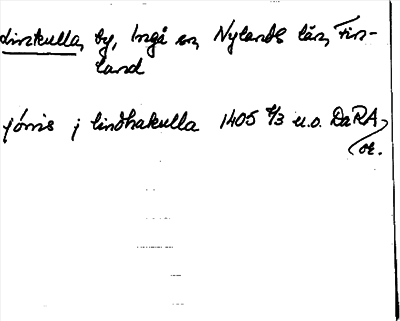 Linkulla, by, Ingå sn, Nylands län, Fin-
land
jönis j lindhakulla 1405 6/3 u.o. DaRA,
or.